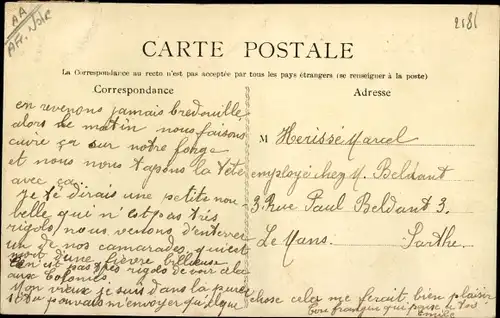 AA
Aff. Noire
2181
CARTE POSTALE
La Correspondance au recto n'est pas acceptée par tous les pays étrangers (se renseigner à la poste)
Correspondance
Adresse
en revenons jamais bredouille
alors le matin nous faisons
cuire ça sur notre forge
et nous nous tapons la tête
avec ça.
Je te dirais une petite nou-
belle qui n'est pas très
rigolo, nous venons d'enterrer
un de nos camarades, qui est
mort d'une fièvre billieuse
c'est pas très rigolo de voir cela
aux Colonies
Mon vieux je suis dans la purée
si tu pouvais m'envoyer quelque
chose cela me ferait bien plaisir
M Herissé Marcel
employé chez M. Beldant
3 Rue Paul Beldant 3.
Le Mans. Sarthe.
Ton frangin qui pense à toi
Emile